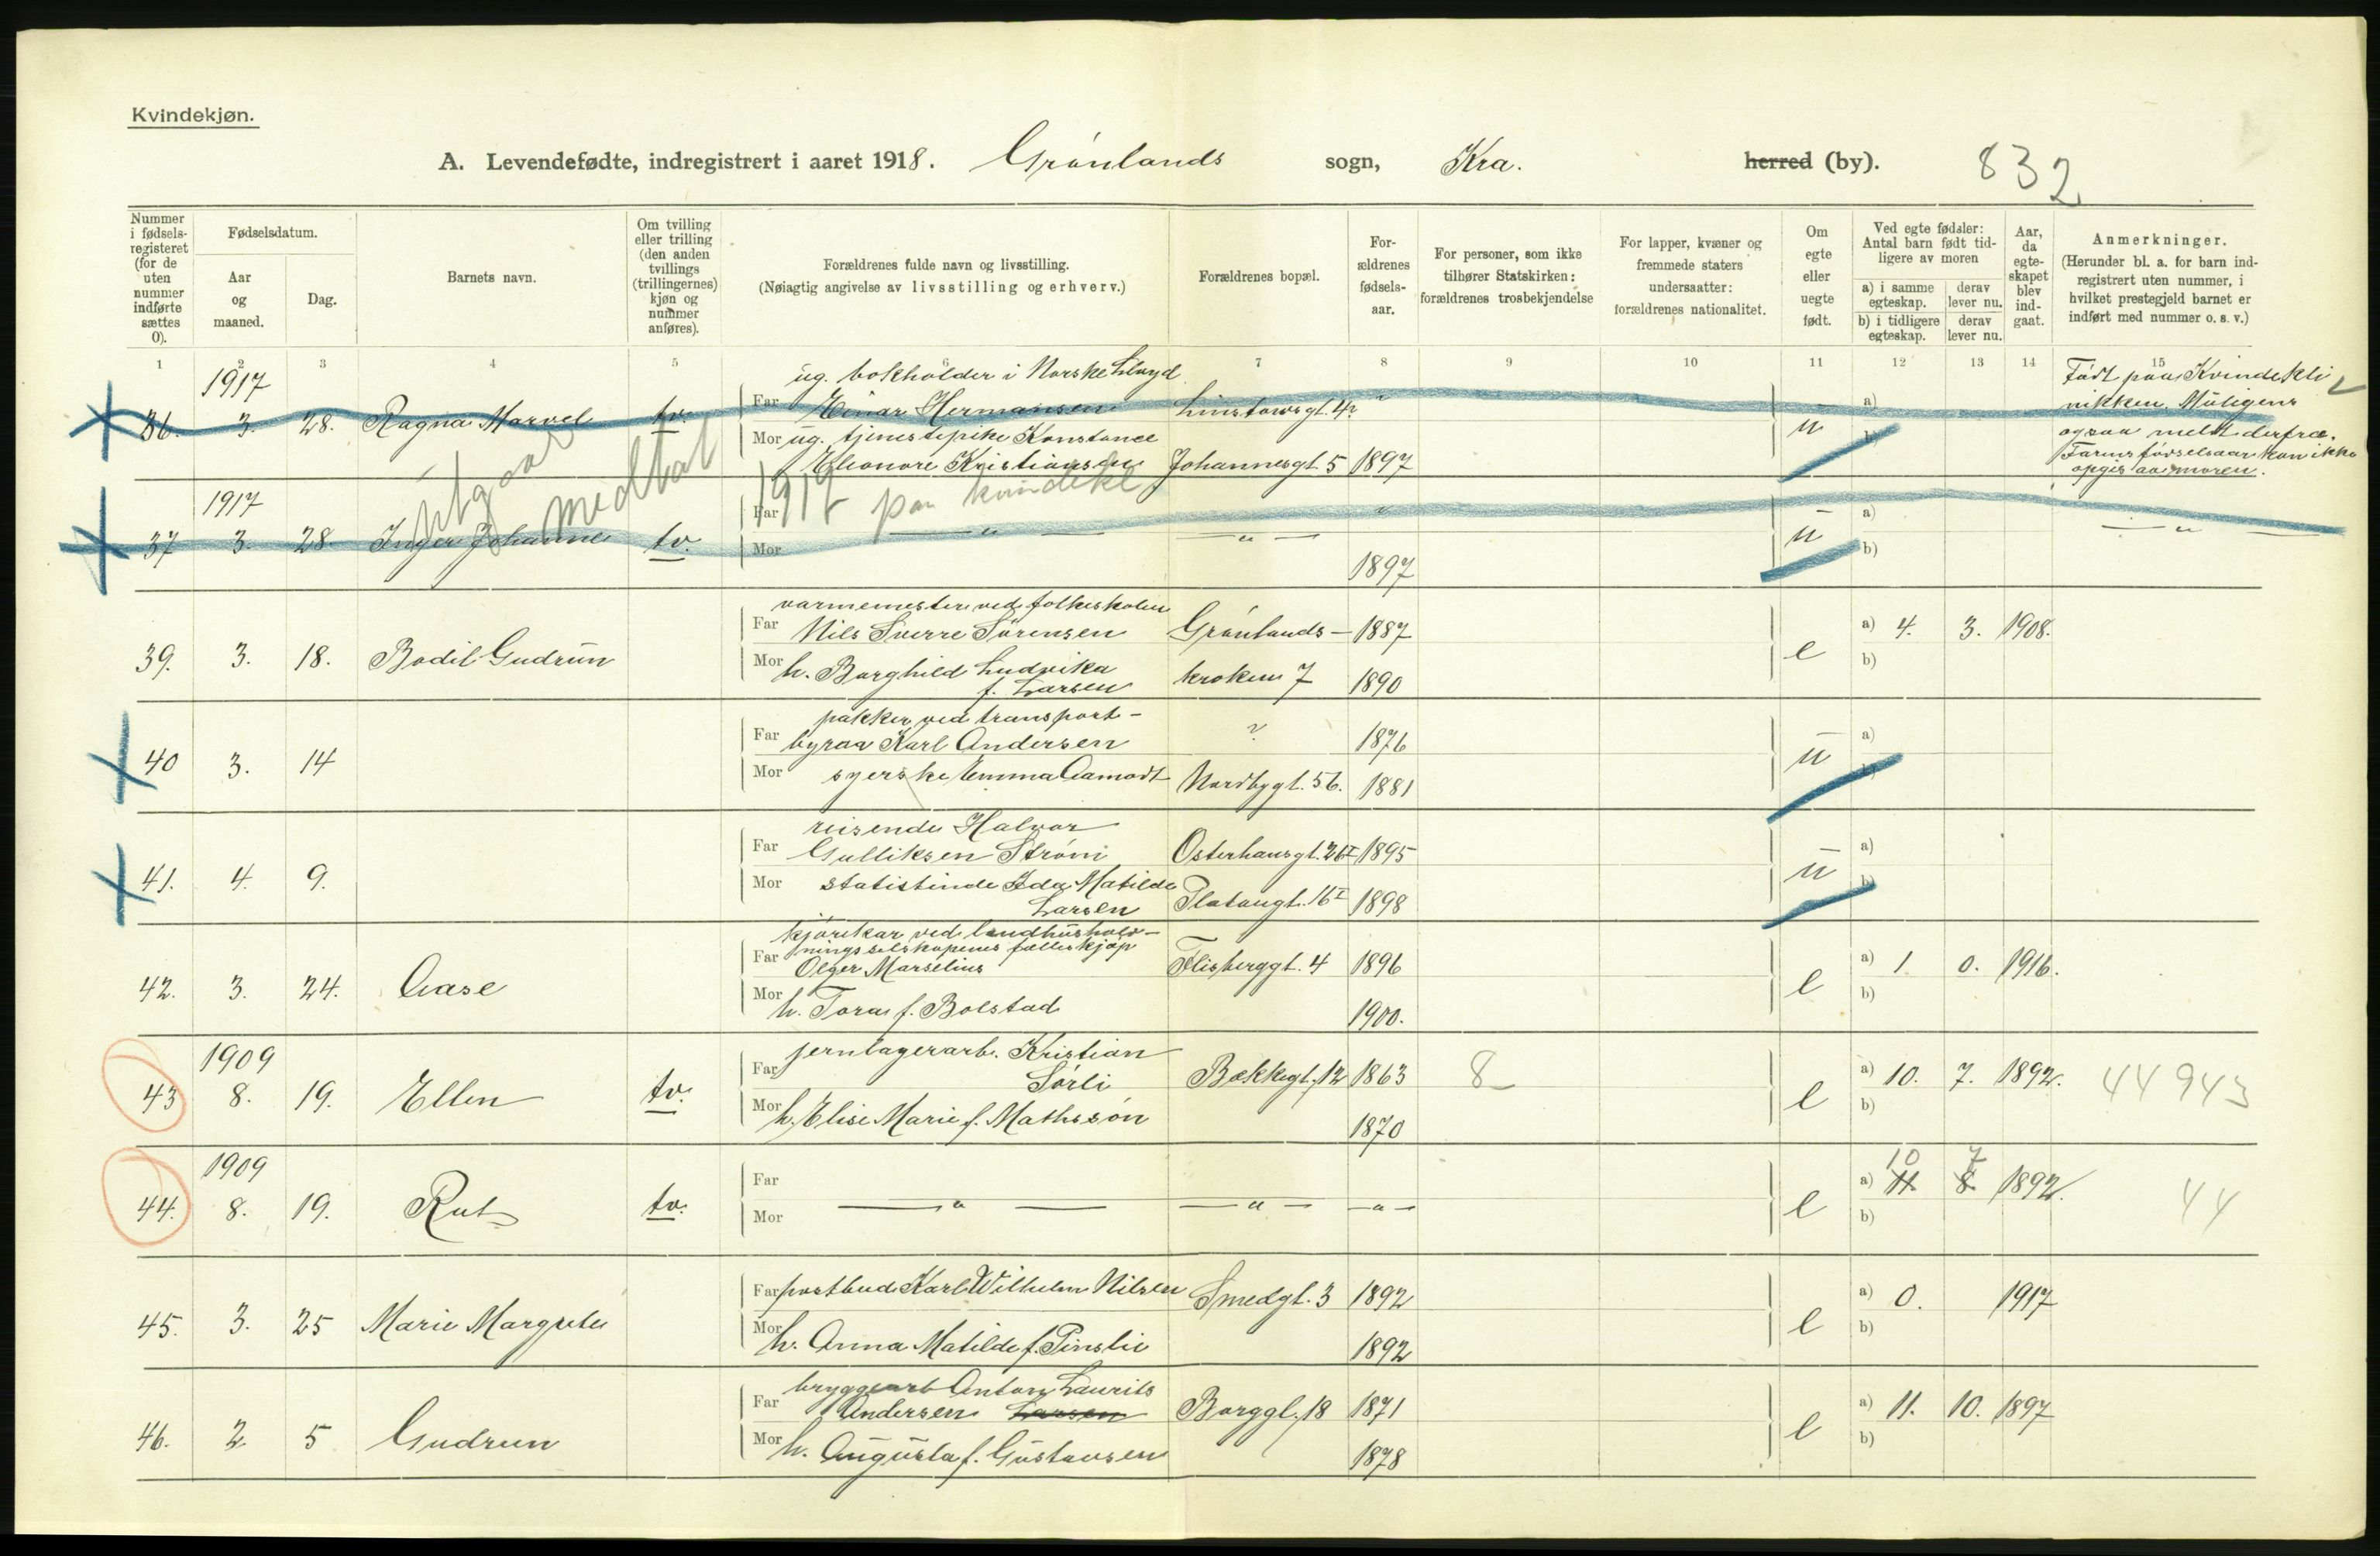 Kvindekjøn.
A. Levendefødte, indregistrert i aaret 1918. Grønlands sogn, Kra. herred (by). 832
Nummer i fødsels-registeret (for de uten nummer indførte sættes 0).
Fødselsdatum.
Aar og maaned.
Dag.
Barnets navn.
Om tvilling eller trilling (den anden tvillings (trillingernes) kjøn og nummer anføres).
Forældrenes fulde navn og livsstilling.
(Nøiagtig angivelse av livsstilling og erhverv.)
Forældrenes bopæl.
For-ældrenes fødsels-aar.
For personer, som ikke tilhører Statskirken: forældrenes trosbekjendelse
For lapper, kvæner og fremmede staters undersaatter: forældrenes nationalitet.
Om egte eller uegte født.
Ved egte fødsler: Antal barn født tid-ligere av moren
a) i samme egteskap.
derav lever nu.
b) i tidligere egteskap.
derav lever nu.
Aar, da egte-skapet blev ind-gaat.
Anmerkninger.
(Herunder bl. a. for barn ind-registrert uten nummer, i hvilket prestegjeld barnet er indført med nummer o. s. v.)
1 2 3 4 5 6 7 8 9 10 11 12 13 14 15
1917
36. 3. 28. Ragna Marvel tv.
ug. bokholder i Norske Lloyd
Far Einar Hermansen Linstowsgt. 4
Mor ug. tjenestepike Konstance
Eleonore Kristiansen Johannesgt. 5 1897
u a) b)
Født paa Kvindekli
nikken. Muligens
ogsaa meldt derfra.
Farens fødselsaar kan ikke
opgis av moren.
utgaar medtat 1917 paa kvindekl
1917
37 3. 28. Inger Johanne tv.
Far — " —
Mor — " — 1897
u a) b) — " —
39. 3. 18. Bodil Gudrun
varmemester ved folkeskolen
Far Nils Sverre Sørensen Grønlands- 1887
Mor h. Borghild Ludvika
f. Larsen kroken 7 1890
e a) 4. 3. 1908.
b)
40 3. 14
pakker ved transport-
Far byraa Karl Andersen ? 1876
Mor syerske Emma Aamodt Nordbygt. 56. 1881
u a) b)
41. 4. 9.
reisende Halvor
Far Gulliksen Strøm Osterhausgt. 26 I 1895
Mor statistinde Ida Matilde
Larsen Platougt. 16 I 1898
u a) b)
42. 3. 24. Aase
kjørekar ved landhushold-
ningsselskapenes fælleskjøp
Far Olger Marselius Flisberggt. 4 1896
Mor h. Tora f. Bolstad 1900.
e a) 1. 0. 1916.
b)
1909
43 8. 19. Ellen tv.
jernlagerarb. Kristian
Far Sørli Bekkegt. 12 1863 8
Mor h. Elise Marie f. Mathsson 1870
e a) 10. 7. 1892. 44943
b)
1909
44. 8. 19. Rut tv.
Far
— " — — " — — " —
Mor
e 10 7
a) 11. 8. 1892. 44
b)
45. 3. 25 Marie Margrete
Far postbud Karl Wilhelm Nilsen Smedgt. 3 1892
Mor h. Anna Matilde f. Pinslie 1892
e a) 0. 1917
b)
46. 2 5 Gudrun
bryggearb Anton Laurits
Far Andersen Larsen Borggt. 18 1871
Mor h. Augusta f. Gustavsen 1878
e a) 11. 10. 1897
b)